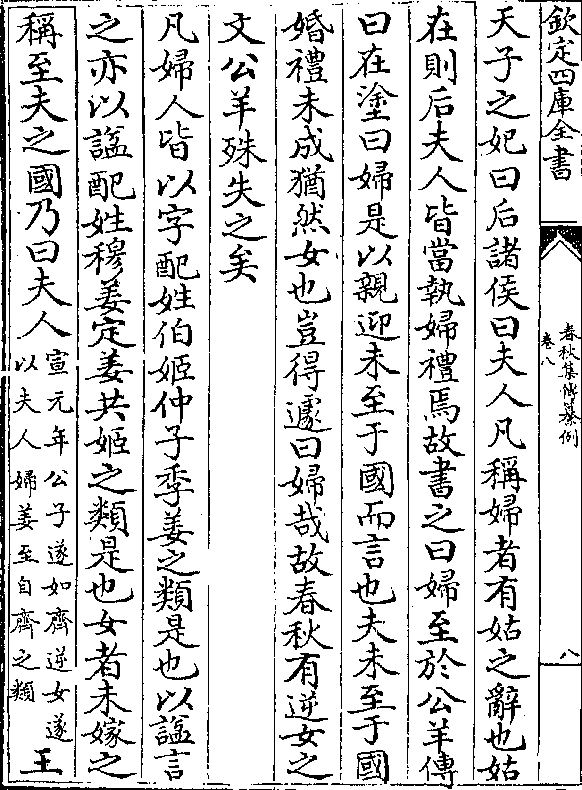 欽定四庫全書
春秋集傳纂例
卷八
八
天子之妃曰后諸侯曰夫人凡稱婦者有姑之辭也姑
在則后夫人皆當執婦禮焉故書之曰婦至於公羊傳
曰在塗曰婦是以親迎未至于國而言也夫未至于國
婚禮未成猶然女也豈得遽曰婦哉故春秋有逆女之
文公羊殊失之矣
凡婦人皆以字配姓伯姬仲子季姜之類是也以諡言
之亦以諡配姓穆姜定姜共姬之類是也女者未嫁之
稱至夫之國乃曰夫人
宣元年公子遂如齊逆女遂
以夫人婦姜至自齊之類
王